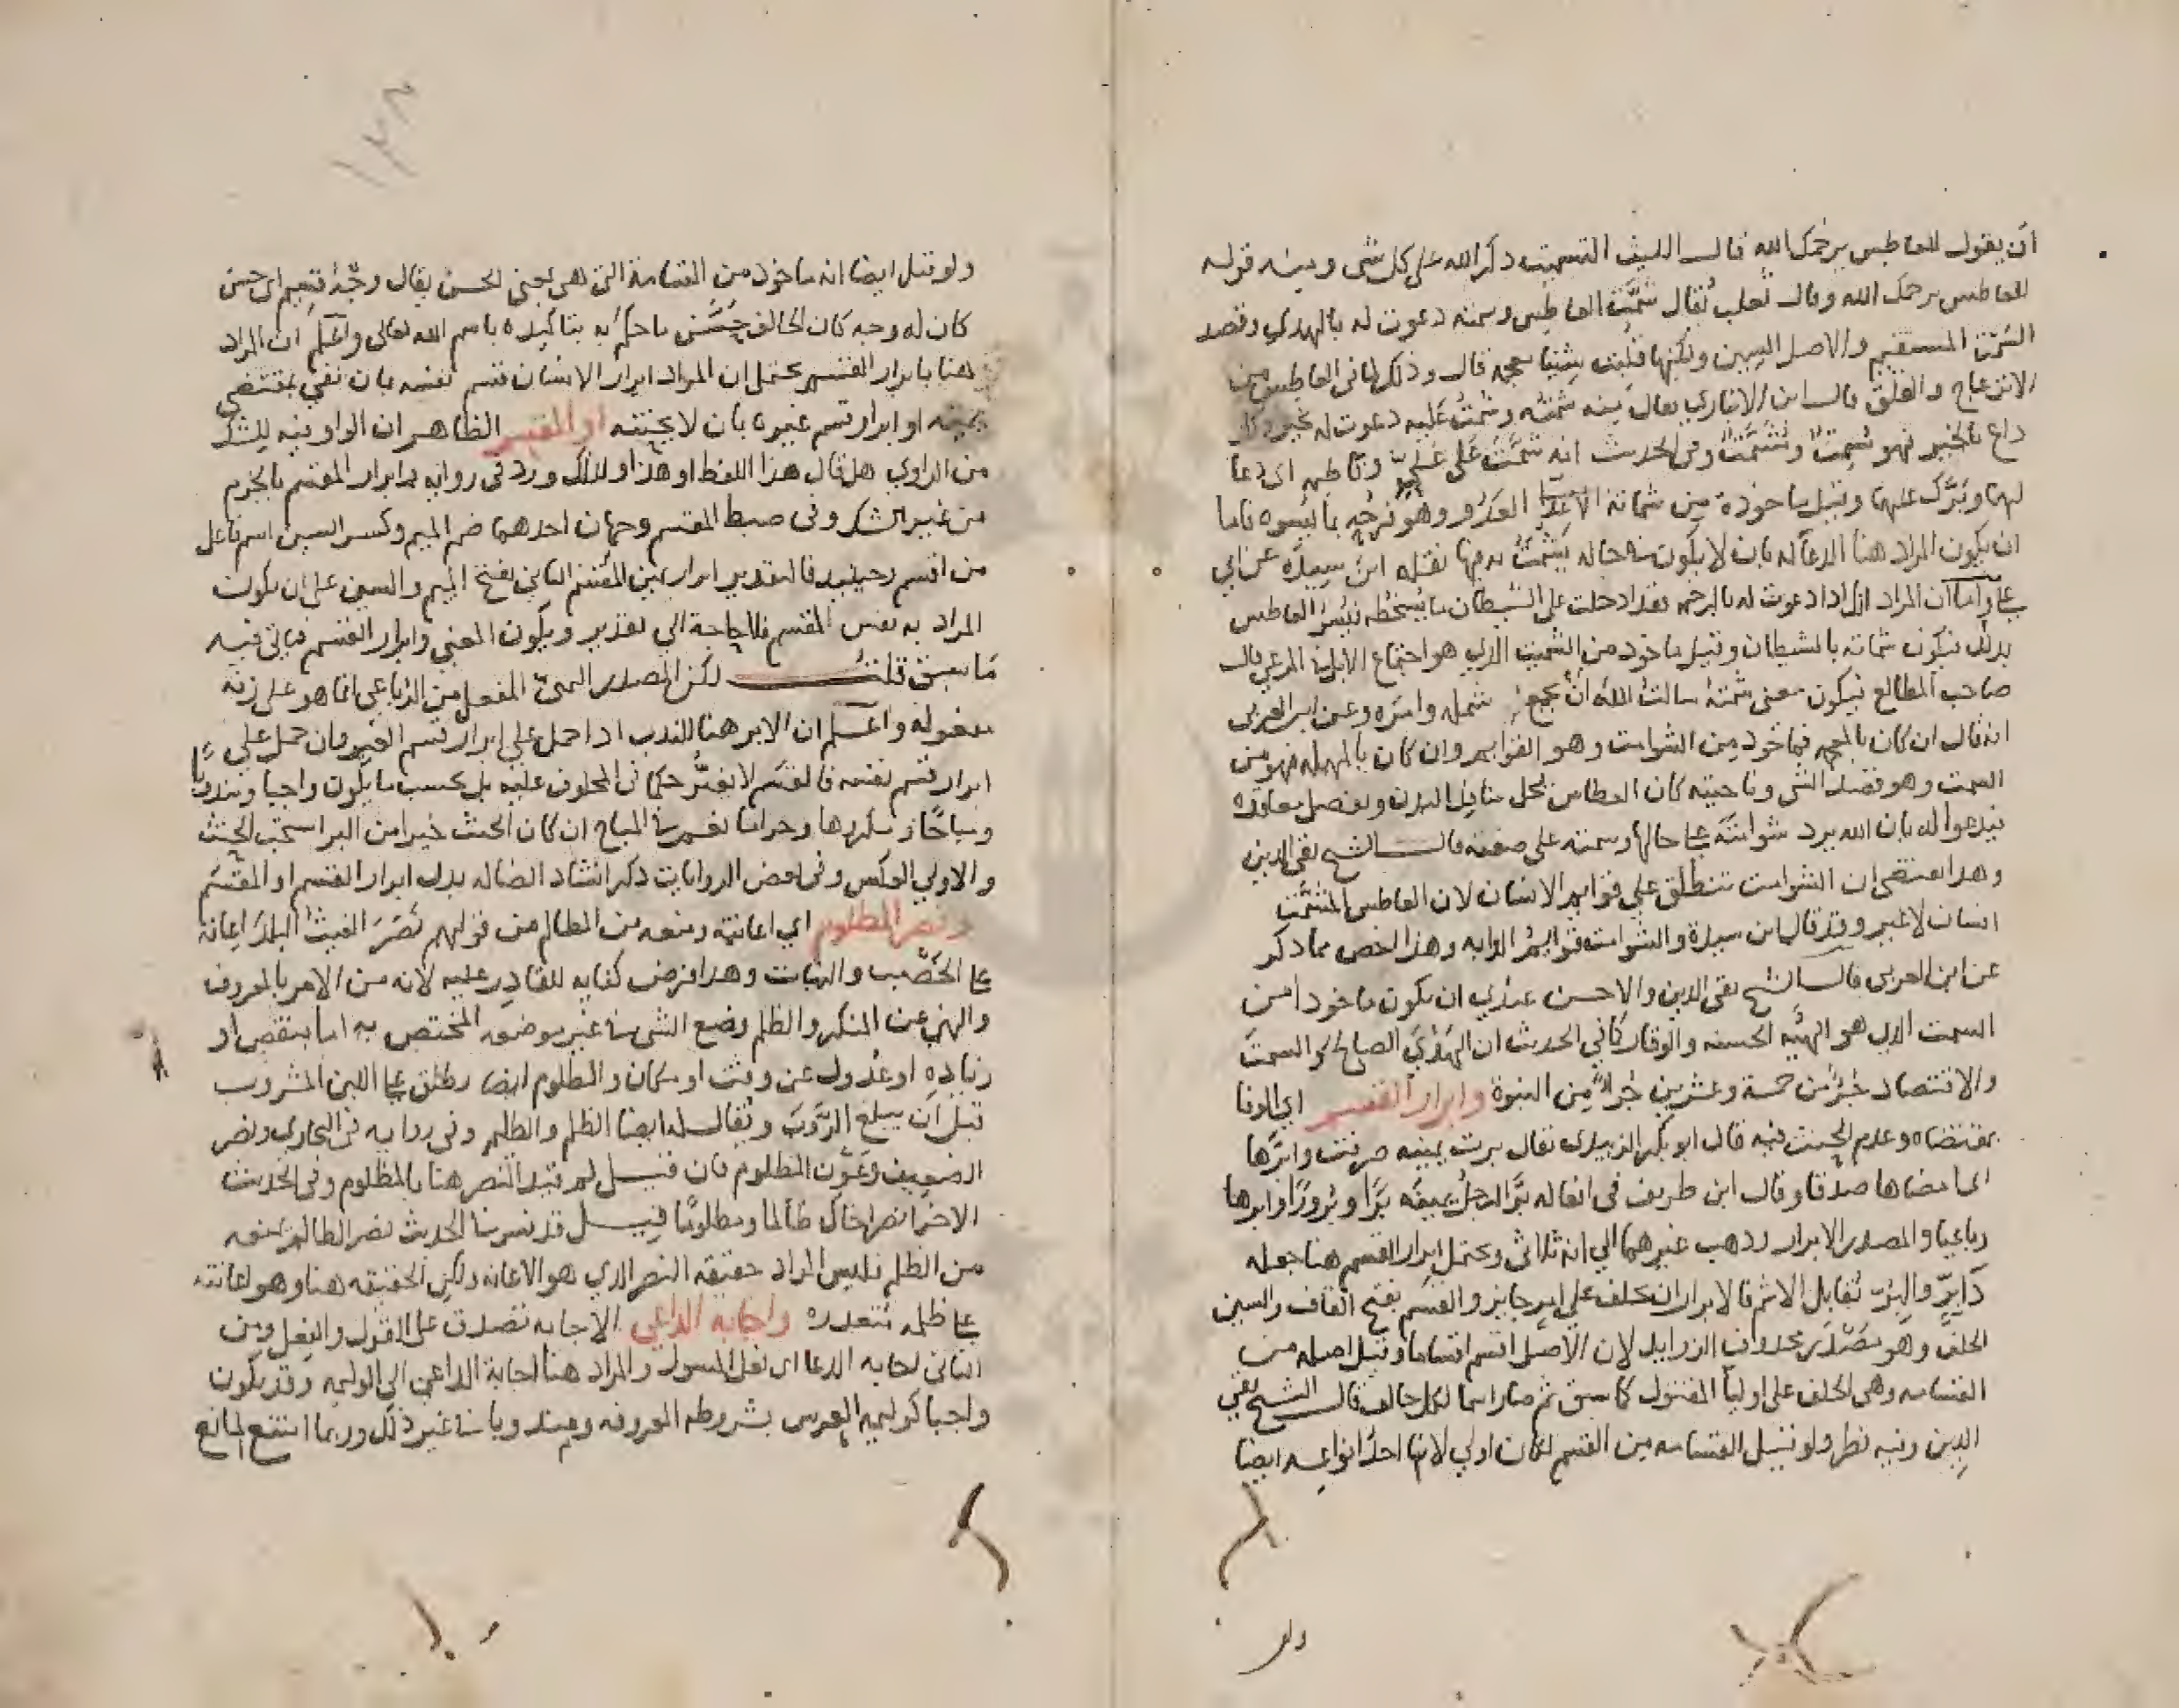 ان يقول للعاطس يرحمك الله قال الليث التسميت ذكر الله على كل شي ومنه قوله
للعاطس يرحمك الله وقال ثعلب يقال شمّت العاطس وسمته دعوت له بالهدي وقصد
السَّمْت المستقيم والاصل السين ولكنها قلبت شينا معجمه قال وذكر لما في العاطس من
الانزعاج والقلق قال ابن الانباري يقال منه شمّته وشمّتُ عليه دعوت له بخير وكل
داع بالخير فهو مُسمِّتٌ ومُشَمِّتٌ وفي الحديث انه شمَّتَ على عليّ وفاطمه اي دعا
لهما وبَرَّك عليهما وقيل ماخوذة من شماتة الاعدا وهو فرحه بما يسوه فاما
ان يكون المراد هنا الدعا له بان لا يكون في حاله يشمت به فيها نقله ابن سِيدَه عن ابي
علي واما ان المراد انك اذا دعوت له بالرحمه فقد ادخلت على الشيطان ما يسخطه فيُسَرُّ العاطس
بذلك فيكون شماته بالشيطان وقيل ماخوذ من التشميت الذي هو اجتماع الابل في المرعى قال
صاحب المطالع فيكون معنى شمته سالت الله ان يجمع شمله وامره وعن ابن العربي
انه قال ان كان بالمعجمه فماخوذ من الشوامت وهو القوايم وان كان بالمهمله فهو من
السمت وهو قصد الشي وناحيته كان العطاس يحل منافذ البدن ويفصل معاقده
فيدعوا له بان الله يرد شوامته على حالها وسمته على صفته قال الشيخ تقي الدين
وهذا يقتضي ان الشوامت تنطلق على قوايم الانسان لان العاطس المشمَّت
انسان لا غير وقد قال ابن سيدة والشوامت قوايم الدابه وهذا اخص مما ذكر
عن ابن العربي قال الشيخ تقي الدين والاحسن عندي ان يكون ماخوذا من
السمت الذي هو الهيئه الحسنه والوقار كما في الحديث ان الهَدْيَ الصالح والسمتَ
والاقتصاد جزء من خمسة وعشرين جزاً من النبوة وابرار القسم اي الوفا
بمقتضاه وعدم الحنث فيه قال ابو بكر الزبيدي تقال برت يمينه صدقت وابرَّها
اي امضاها صدقا وقال ابن طريف في افعاله برَّ الرجلُ يمينَه برًّا وبُرورًا وابرها
رباعيا والمصدر الابرار وذهب غيرهما الي انه ثلاثي ويحتمل ابرار القسم هنا جعله
ذا بِرٍّ والبِرّ يُقابل الاثم فالابرار ان يحلف علي امر جايز والقسم بفتح القاف والسين
الحلف وهو مَصْدَر محذوف الزوايد لان الاصل اقسم اقساما وقيل اصله من
القسامه وهي الحلف على اوليا المقتول كما سبق ثم صار اسما لكل حالف قال الشيخ تقي
الدين وفيه نظر ولو قيل القسامه من القسم لكان اولي لانها احدُ انواعه ايضا
ولو
١٢٨
ولو قيل ايضا انه ماخوذ من القسامة التي هي بمعني الحسن يقال وجْهٌ قَسِيم اي حسن
كان له وجه كان الحالف حَسَّن ما حكم به بتاكيده باسم الله تعالى واعلم ان المراد
هنا بابرار القسم يحتمل ان المراد ابرار الانسان قسم نفسه بان يفي بمقتضى
يمينه او ابرار قسم غيره بان لا يحنثه او المقسِم الظاهر ان الواو فيه للشك
من الراوي هل قال هذا اللفظ او هذا ولذلك ورد في روايه بابرار المقسم بالجزم
من غير شك وفي ضبط المقسم وجهان احدهما ضم الميم وكسر السين اسم فاعل
من اقسم وحينيذ فالتقدير ابرار يمين المقسم الثاني بفتح الميم والسين على ان يكون
المراد به نفس المقسم فلا حاجة الي تقدير ويكون المعني وابرار القسم فياتي فيه
مَا سبق قلت لكن المصدر الميميّ المفعل من الرباعي انما هو على زنة
مفعوله واعلم ان الامر هنا للندب اذا حمل علي ابرار قسم الغير فان حمل علي
ابرار قسم نفسه فالقسم لا يغيّر حكما في المحلوف عليه بل بحسب ما يكون واجبا ومندوبا
ومباحًا ومكروها وحراما نعم في المباح ان كان الحنث خيرا من البر استحب الحنث
والاولي العكس وفي بعض الروايات ذكر انشاد الضاله بدل ابرار القسم او المقسم
ونصر المظلوم اي اعانته ومنعه من الظالم من قولهم نَصَرَ الغيثُ البلدَ اعانه
على الخَصْب والنبات وهذا فرض كفايه للقادر عليه لانه من الامر بالمعروف
والنهي عن المنكر والظلم وضع الشي في غير موضعه المختص به اما بنقص او
زياده او عُدول عن وقت او مكان والمظلوم ايضا يطلق على اللبن المشروب
قبل أن يبلغ الرَّوْبَ ويُقال له ايضا الظلم والظليم وفي روايه في البخاري ونصر
الضعيف وعَوْن المظلوم فان قيل لم قيد النصر هنا بالمظلوم وفي الحديث
الاخر انصر اخاك ظالما ومظلومًا قيل قد فسر في الحديث نصر الظالم بمنعه
من الظلم فليس المراد حقيقه النصر الذي هو الاعانه ولكن الحقيقه هنا وهو اعانته
على ظلمه متعذره واجابه الداعي الاجابه تصدق على القول والفعل ومن
الثاني اجابه الدعا اي فعل المسول والمراد هنا اجابة الداعي الي الوليمه وقد يكون
واجبا كوليمه العرس بشروطه المعروفه ومندوبا في غير ذلك وربما امتنع لمانع